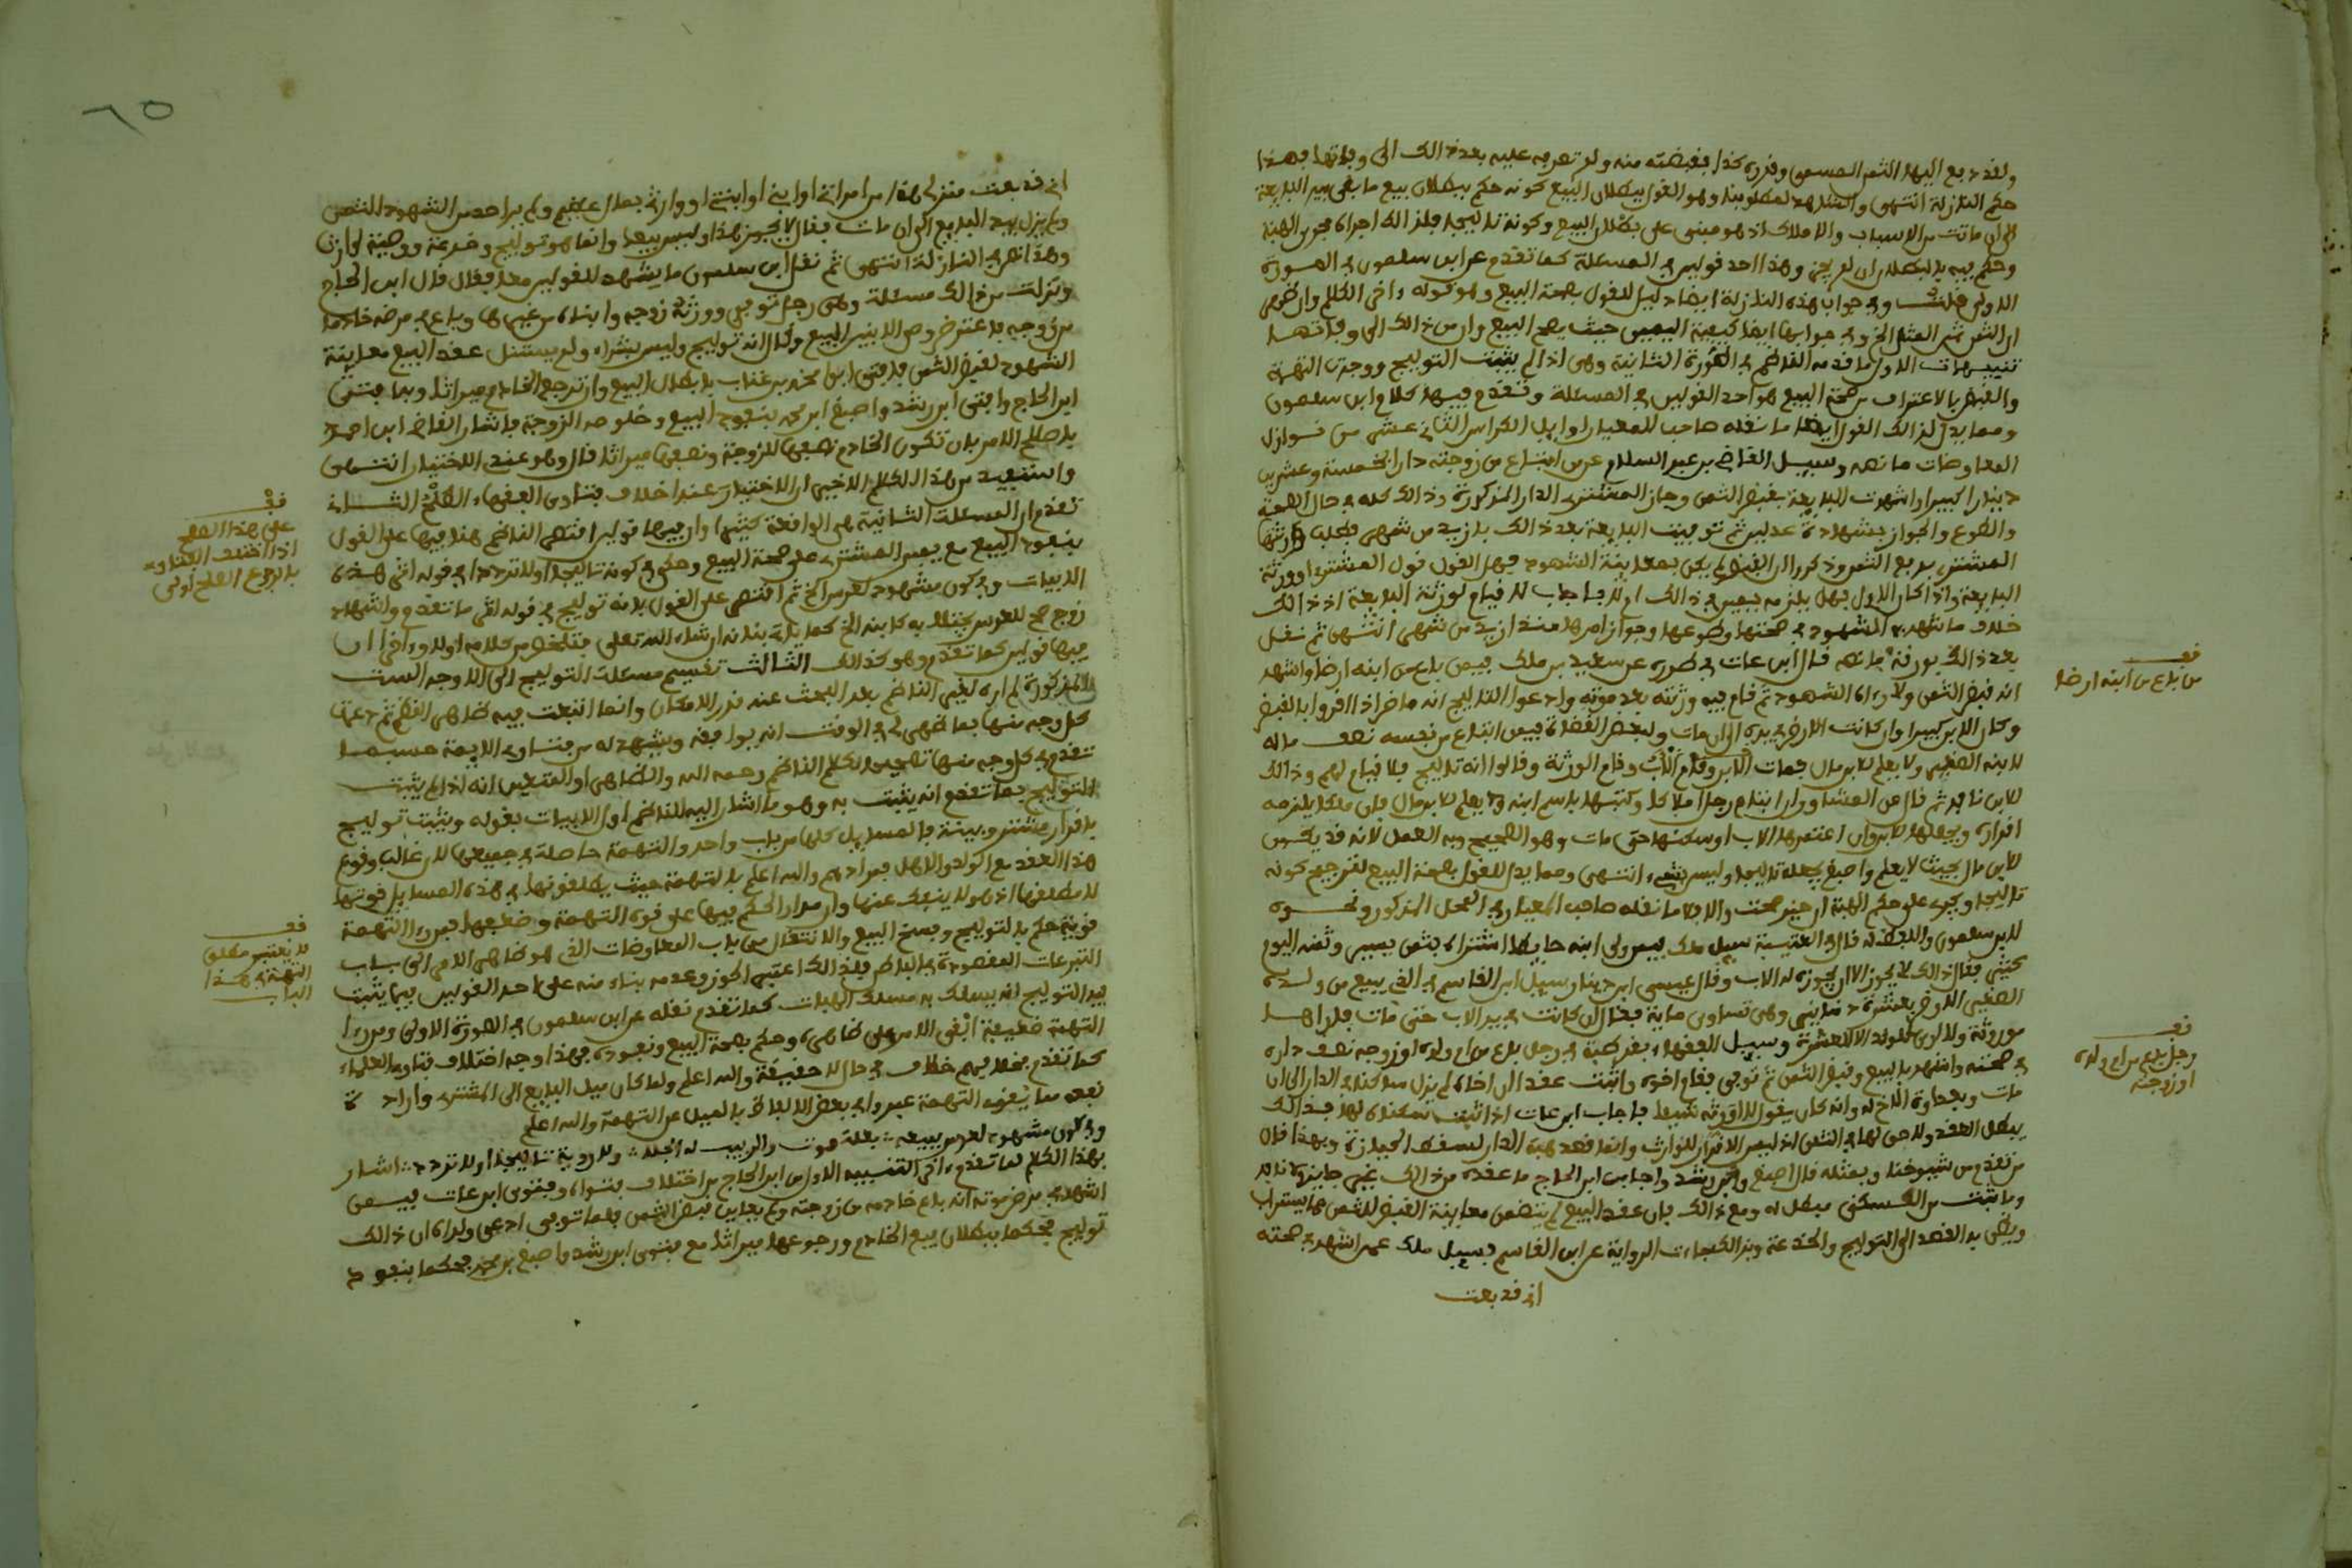 ولقد دفع اليها الثمن المسمى وقدره كذا فقبضته منه ولم تعرف عليه بعد ذالك الى وفاتها فهذا
حكم النازلة انتهى والشاهد لمطلوبنا وهو القول ببطلان البيع كونه حكم ببطلان بيع ما بقي بيد البايعة
الى ان ماتت من الاسباب والاملاك اذ هو مبني على بطلان البيع وكونه تاليجا فلذالك اجراه مجرى الهبة
وحكم فيه بالبطلان ان لم يحز وهذا احد قولين في المسئلة كما تقدم عن ابن سلمون في الصورة
الاولى قلت وفي جواب هذه النازلة ايضا دليل للقول بصحة البيع وهو قوله واخر الكلام وان ظهر
ان الثمن ثمن المثل الخ وفي جوابها ايضا كيفية اليمين حيث يصح البيع وان من ذالك الى وفاتهــا
تنبيهات الاول ما قدمه الناظم في الصورة الثانية وهي اذا لم يثبت التوليج ووجدت التهمة
والقبض بالاعتراف من صحة البيع هو احد القولين في المسئلة وتقدم فيها كلام ابن سلمون
ومما يدل لذالك القول ايضا ما نقله صاحب المعيار اوايل الكراس الثاني عشر من نــوازل
المعاوضات ما نصه وسيــل القاضي بن عبد السلام عمن ابتاع من زوجته دارا بخمسة وعشرين
دينارا كبيرا واشهدت البايعة بقبض الثمن وحاز المشتري الدار المذكورة وذالك كله في حال الصحة
والطوع والجواز بشهادة عدلين ثم توفيت البايعة بعد ذالك بازيد من شهر فطلب ورثتها
المشتري بدفع الثمن وذكروا ان القبض لم يكن بمعاينة الشهود فهل القول قول المشتري او ورثة
البايعة واذا كان الاول فهل يلزمه يمين في ذالك ام لا فاجاب لا قيام لورثة البايعة اذ ذالك
خلاف ما شهد به الشهود في صحتها وطوعها وجواز امرها منذ ازيد من شهر انتهى ثم نقل
بعد ذالك بورقة ما نصه قال ابن عات في طرره عن سعيد بن ملك فيمن باع من ابنه ارضا واشهد
انه قبض الثمن ولا رءاه الشهود ثم قام فيه ورثته بعد موته وادعوا التاليج انه ماض اذا اقروا بالقبض
وكان الابن كبيرا وان كانت الارض في يده الى ان مات ولبعض القضاة فيمن ابتاع من نفسه نصف ماله
لابنه الصغير ولا يعلم للابن مال فمات الابن وقام الاب وقام الورثة وقالوا انه تاليج فلا قيام لهم وذالك
للابن نافذ ثم قال عن المشاور ان ابتاع رجل املاكا وكتبها باسم ابنه ولا يعلم للابن مال فان ملكه يلزمه
اقراره ويجعلها للابن وان اعتمرها الاب او سكنها حتى مات وهو الصحيح وبه العمل لانه قد يكــون
للابن مال بحيث لا يعلم واصبغ يجعله تاليجا وليس بشيء انتهى ومما يدل للقول بصحة البيع لترجيح كونه
تاليجا ويجري على حكم الهبة ان حيز صحت والا فلا ما نقله صاحب المعيار في المحل المذكور ونحــوه
لابن سلمون واللفظ له قال في العتبية سيل ملك فيمن ولى ابنه حايطا اشتراه بثمن يسير وثمنه اليوم
كثير فقال ذالك لا يجوز الا ان يحوزه له الاب وقال عيسى ابن دينار سيل ابن القاسم في الذي يبيع من ولــده
الصغير الارض بعشرة دنانير وهي تساوي ماية فقال ان كانت في يد الاب حتى مات فاراهــا
موروثة ولا ارى للولد الا العشرة وسيــل الفقهاء بقرطبة في رجل باع من ام ولده او زوجه نصف داره
في صحته واشهد بالبيع وقبض الثمن ثم توفي فقام اخوه واثبت عقدا ان اخاه لم يزل ساكنا في الدار الى ان
مات وبعداوة الاخ له وانه كان يقول لا اورثه شيئا فاجاب ابن عات اذا ثبتت سكناه لها فبذالك
يبطل العقد ولا حق لها في الثمن اذ ليس الاقرار للوارث وانما قصد هبة الدار ليسقط الحيازة وبهذا قال
من تقدم من شيوخنا وبمثله قال اصبغ وابن رشد واجاب ابن الحاج ما عقده من ذالك غير جايز ولا نافذ
وما ثبت من السكنى مبطل له ومع ذالك فان عقد البيع لم يتضمن معاينة القبض للثمن مما يستراب
ويظن به القصد الى التوليج والخدعة وبذالك جاءت الرواية عن ابن القاسم فسيل ملك عمن اشهد في صحته
اني قد بعت
فقــ
من باع من ابنه ارضا
فقــ
رجل باع من ام ولده
او زوجته
٦٥
اني قد بعت منزلي هذا من امراتي او ابني او ابنتي او وارثي بمال عظيم ولم ير احد من الشهود الثمن
ولم يزل بيد البايع الى ان مات فقال لا يجوز هذا وليس بيعا وانما هو توليج وخدعة ووصية لوارث
وهذا نص في النازلة انتهى ثم نقل ابن سلمون ما يشهد للقولين معا فقال قال ابن الحاج
ونزلت من ذالك مسئلة وهي رجل توفي وورثه زوجه وابناه من غيرها وباع في مرضه خادما
من زوجه فاعترض وصي الابنين البيع وقال انه توليج وليس بشراء ولم يتضمن عقد البيع معاينة
الشهود لقبض الثمن فافتى ابن محمد بن عتاب بابطال البيع وان ترجع الخادم ميراثا وبها افتى
ابن الحاج وافتى ابن رشد واصبغ ابن محمد بنفوذ البيع وخلوصه الزوجة فاشار القاضي ابن احمد
باصلاح الامر بان تكون الخادم نصفها للزوجة ونصفها ميراثا قال وهو عندي الاختيار انتهى
واستفيد من هذا الكلام الاخير ان الاختيار عند اختلاف فتاوى الفقهاء الصلح الثــاني
تقدم ان المسئلة الثانية هي الواقعة كثيرا وان فيها قولين اقتصر الناظم هنا فيها على القول
بنفوذ البيع مع يمين المشتري على صحة البيع وحكى في كونه تاليجا اولا ترددا في قوله اخر هذه
الابيات وفي كون مشهود لعرس الخ ثم اقتصر على القول بانه توليج في قوله اخر ما تقدم واشهاد
زوج صح للعرس يحتلى به كابنه الخ كما ياتي بيانه ان شاء الله تعلى فتلخص من كلامه اولا وءاخرا ان
فيها قولين كما تقدم وهو كذالك الثالث تقسيم مسئلة التوليج الى الاوجه الست
المذكورة لم اره لغير الناظم بعد البحث عنه قدر الامكان وانما اتبعت فيه ظاهر النظم ثم دعمت
كل وجه منها بما ظهر لي في الوقت انه يوافقه ويشهد له من فتاوى الايمة حسبمــا
تقدم في كل وجه منها تصحيحا لكلام الناظم رحمه الله والظاهر او المتعين انه اذا لم يثبت
التوليج بما تقدم انه يثبت به وهو ما اشار اليه الناظم اول الابيات بقوله ويثبت توليج
باقرار مشتر وبينة فالمسايل كلها من باب واحد والتهمة حاصلة في جميعها لان غالب وقوع
هذا العقد مع الولد والاهل فمرادهم والله اعلم بالتهمة حيث يطلقونها في هذه المسايل قوتها
لا مطلقها اذ هو لا ينفك عنها وان مدار الحكم فيها على قوة التهمة وضعفها فمن رءا التهمة
قوية حكم بالتوليج وبفسخ البيع والانتقال من باب المعاوضات الذي هو ظاهر الامر الى بــاب
التبرعات المقصودة في الباطن فلذالك اعتبر الحوز وعدمه بناء منه على احد القولين فيما يثبت
فيه التوليج انه يسلك به مسلك الهبات كما تقدم نقله عن ابن سلمون في الصورة الاولى ومن رءا
التهمة ضعيفة ابقى الامر على ظاهره وحكم بصحة البيع ونفوذه فهذا وجه اختلاف فتاوى العلماء
كما تقدم فخلافهم خلاف في حال لا حقيقة والله اعلم ولما كان ميل البايع الى المشتري وارادة
نفعه مما يقوي التهمة عبروا في بعض الالفاظ بالميل عن التهمة والله اعلم
وفي كون مشهود لعرس ببيعه ؞ بعلة موت والربيب له انجلا ؞ ولا رؤية تاليجا اولا تردد ؞ اشــار
بهذا الكلام لما تقدم ءاخر التنبيه الاول عن ابن الحاج من اختلاف فتواه وفتوى ابن عات فيــمن
اشهد في مرض موته انه باع خادمه من زوجته ولم يعاين قبض الثمن فلما توفي ادعى ولداه ان ذالك
توليج فحكما ببطلان بيع الخادم ورجوعها ميراثا مع فتوى ابن رشد واصبغ بن محمد فحكما بنفوذ
فقــ
على هذا الصلح
اذا اختلفت الفتاوى
فالرجوع الصلح اولى
فقــ
لا يعتبر مطلق
التهمة في هــذا
البــاب